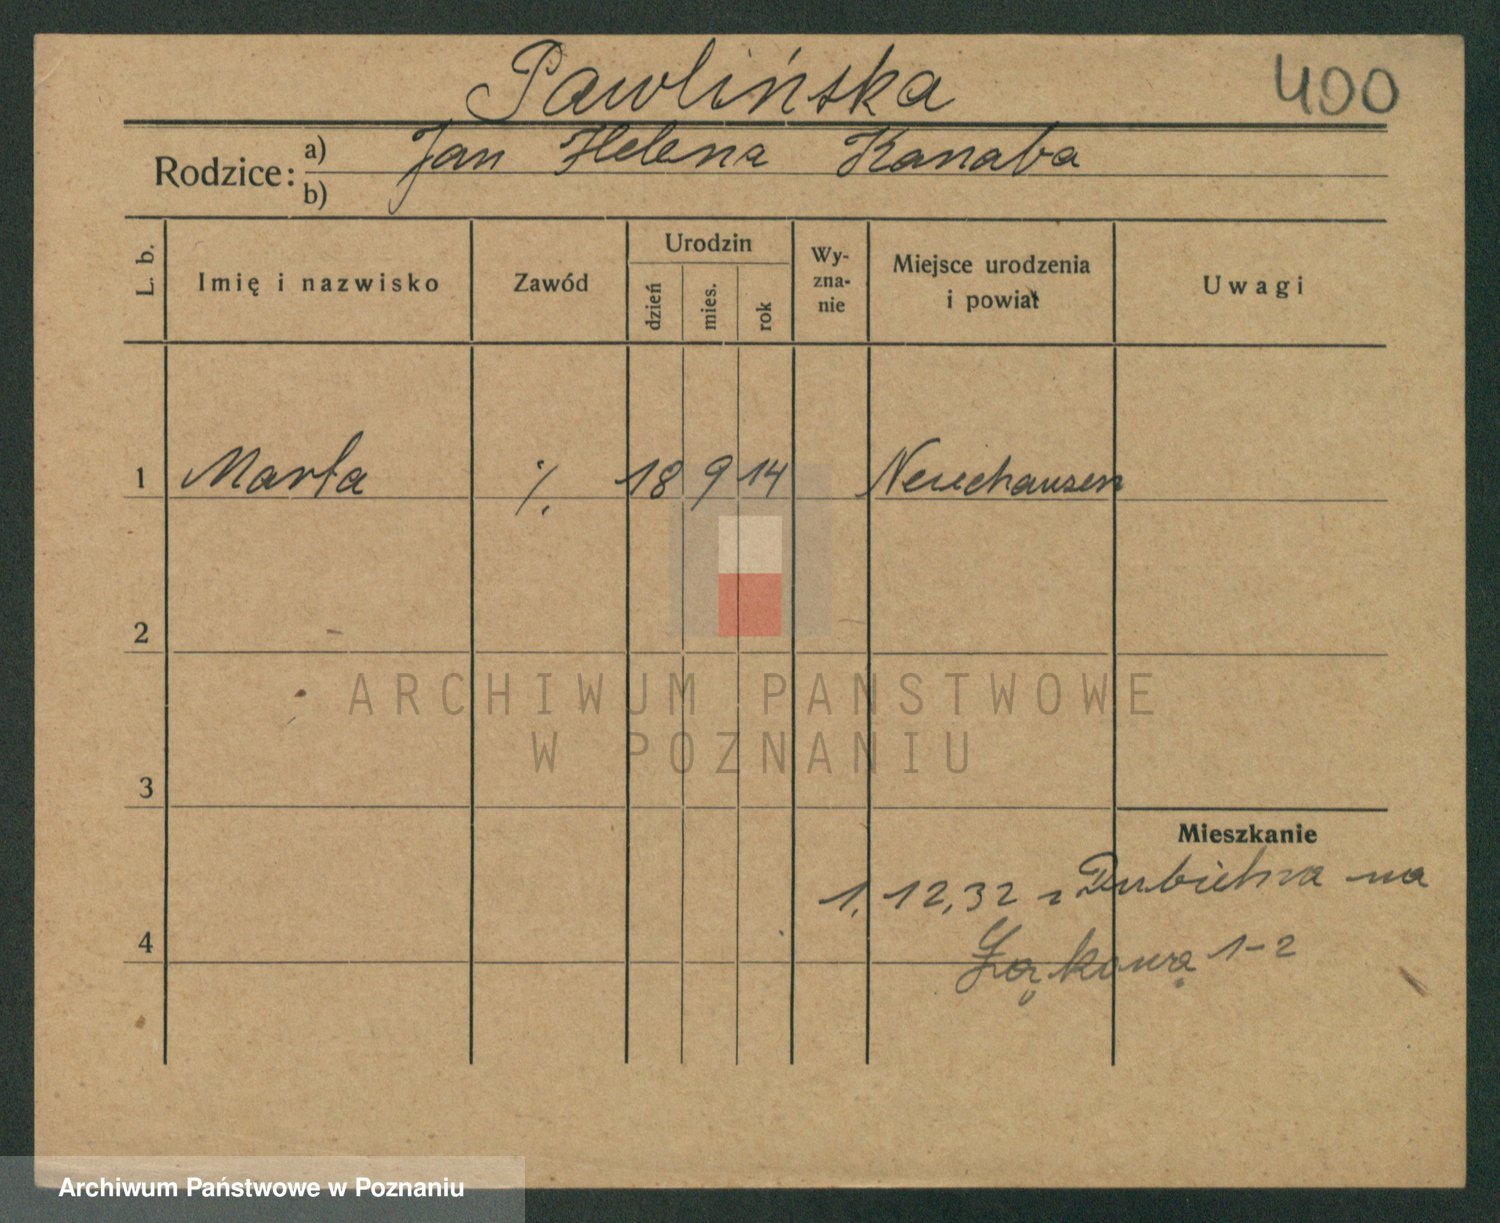 Pawlińska
400
Rodzice: a) Jan Helena Kanaba
b)
L. b.
Imię i nazwisko
Zawód
Urodzin
dzień
mies.
rok
Wy-
zna-
nie
Miejsce urodzenia
i powiat
Uwagi
1 Marta ·/. 18 9 14 Neuehausen
2
ARCHIWUM PAŃSTWOWE
W POZNANIU
3
Mieszkanie
1, 12, 32 z na
4
Łąkową 1-2
Archiwum Państwowe w Poznaniu